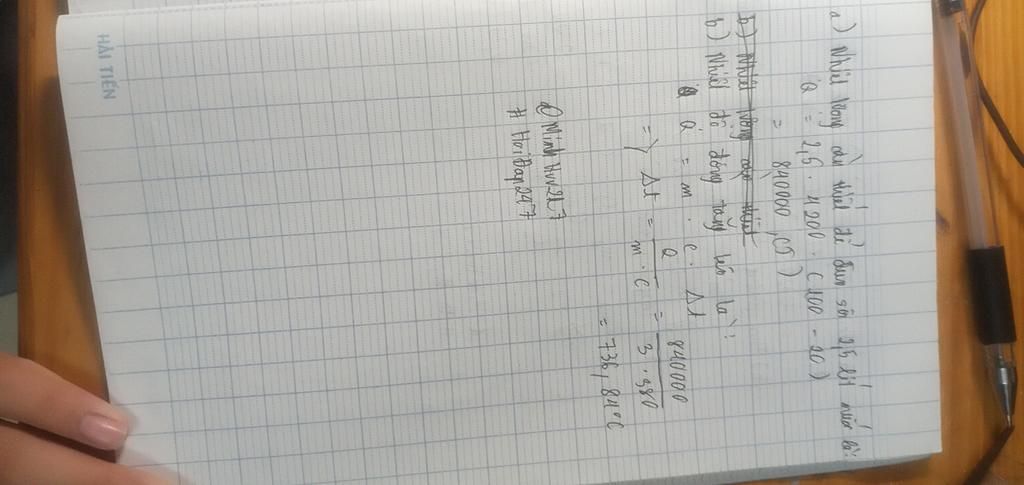 a) Nhiệt lượng cần thiết để đun sôi 2,5 lít nước là:
Q = 2,5 . 4200 . (100 - 20)
= 840000 (J)
b) Nhiệt lượng cần thiết
b) Nhiệt độ đồng tăng lên là:
Q = m . c . Δt
=> Δt = Q / m . c = 840000 / 3 . 380
= 736,84°C
# HoiDap247
HẢI TIẾN